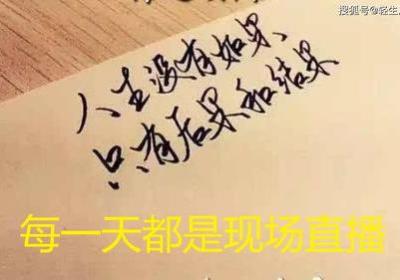 搜狐号@轻生
人生没有如果、
只有后果和结果
每一天都是现场直播